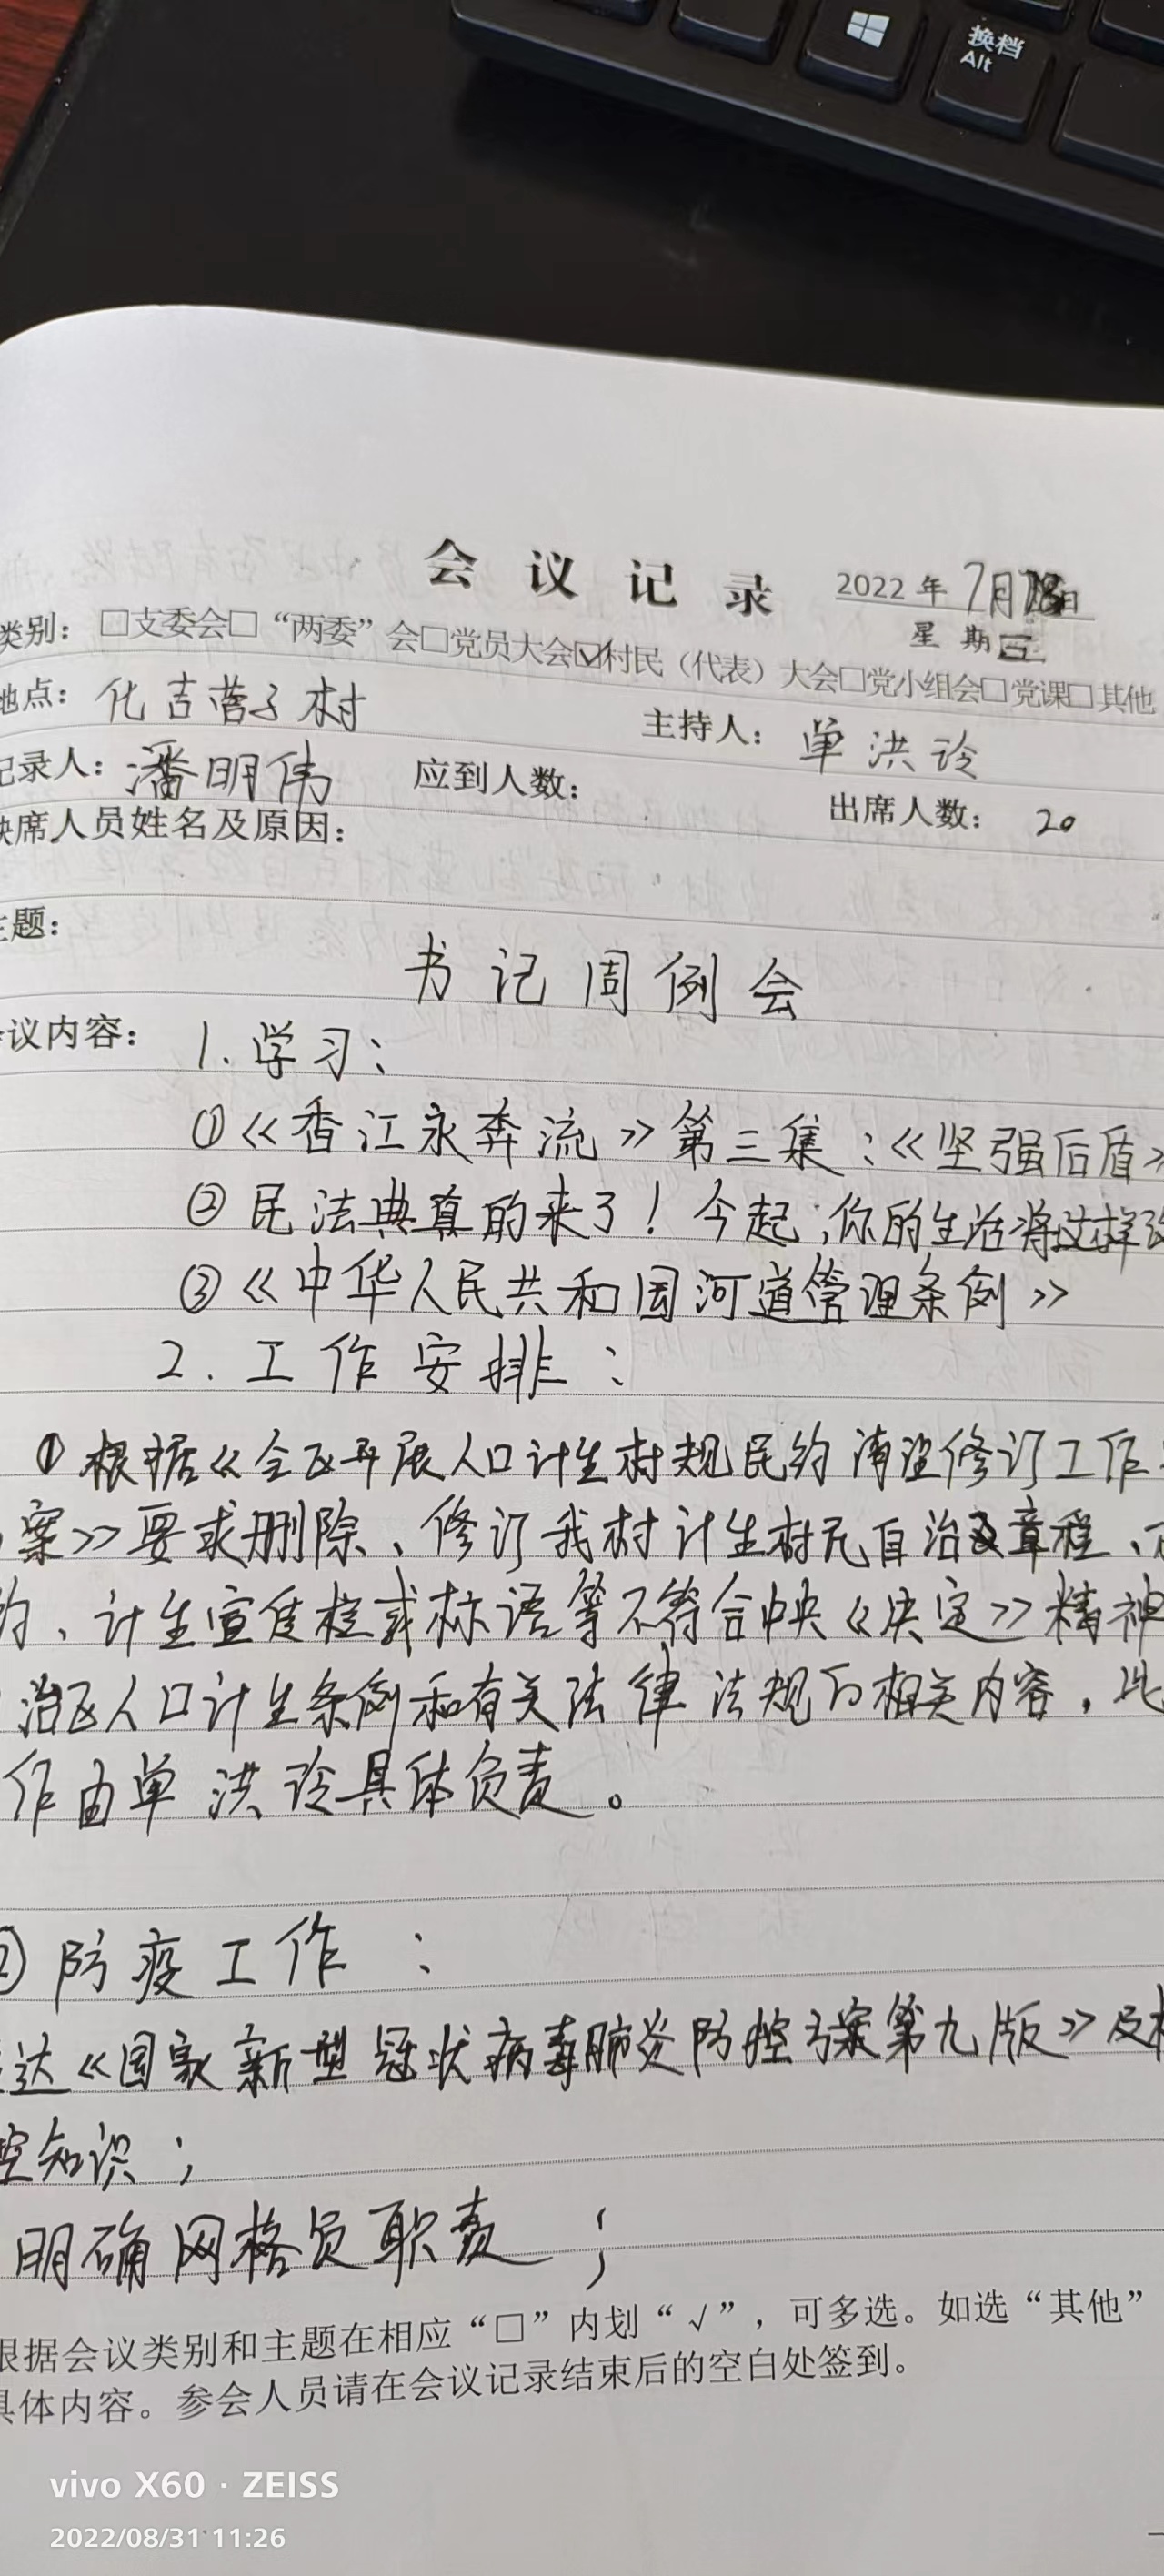 换档
Alt
会议记录
2022年7月 日
星期三
类别：□支委会□“两委”会□党员大会☑村民（代表）大会□党小组会□党课□其他
地点：化吉营子村 主持人：单洪玲
记录人：潘明伟 应到人数： 出席人数：20
缺席人员姓名及原因：
主题：
书记周例会
会议内容：1.学习：
①《香江永奔流》第三集：《坚强后盾》
②民法典真的来了！今起，你的生活将这样改
③《中华人民共和国河道管理条例》
2.工作安排：
①根据《全区开展人口计生村规民约清理修订工作
案》要求删除、修订我村计生村民自治及章程、
约、计生宣传栏或标语等不符合中央《决定》精神
治区人口计生条例和有关法律法规的相关内容，此
作由单洪玲具体负责。
②防疫工作：
达《国家新型冠状病毒肺炎防控方案第九版》及
控知识；
明确网格员职责；
根据会议类别和主题在相应“□”内划“√”，可多选。如选“其他”
具体内容。参会人员请在会议记录结束后的空白处签到。
vivo X60 · ZEISS
2022/08/31 11:26